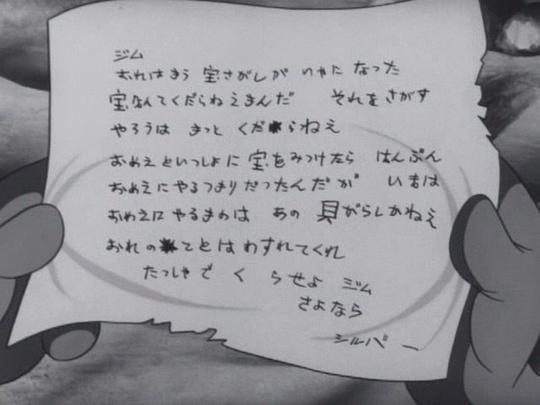 ジム
おれはもう 宝さがしが いやに なった
宝なんてくだらねえもんだ それをさがす
やろうは もっと くだらねえ
おめえといっしょに宝をみつけたら はんぶん
おめえにやるつもりだったんだが いまは
おめえにやるものは あの 貝がらしかねえ
おれのことはわすれてくれ
たっしゃで くらせよ ジム
さよなら
シルバー